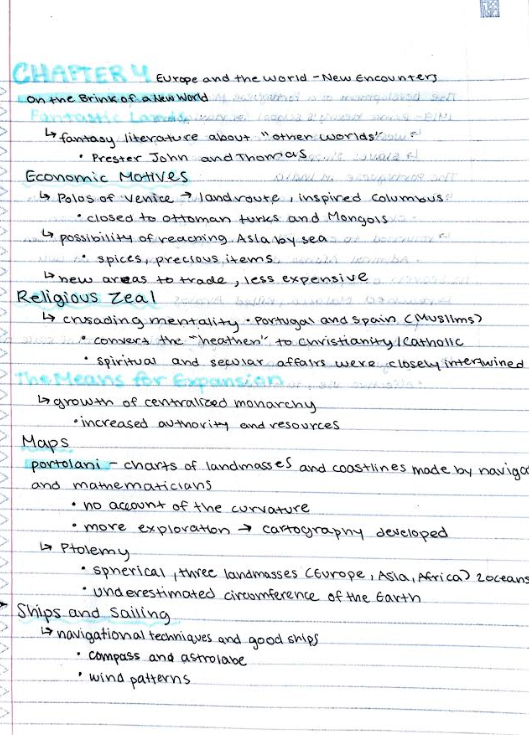 CHAPTER 4 Europe and the World - New Encounters
On the Brink of a New World
Fantastic Lands
↳ fantasy literature about "other worlds"
• Prester John and Thomas
Economic Motives
↳ Polos of Venice → land route, inspired Columbus
• closed to ottoman turks and Mongols
↳ possibility of reaching Asia by sea
• spices, precious items
↳ new areas to trade, less expensive
Religious Zeal
↳ crusading mentality • Portugal and Spain (Muslims)
• convert the "heathen" to christianity/Catholic
• spiritual and secular affairs were closely intertwined
The Means for Expansion
↳ growth of centralized monarchy
• increased authority and resources
Maps
portolani - charts of landmasses and coastlines made by naviga
and mathematicians
• no account of the curvature
• more exploration → cartography developed
↳ Ptolemy
• spherical, three landmasses (Europe, Asia, Africa) 2 oceans
• underestimated circumference of the Earth
Ships and Sailing
↳ navigational techniques and good ships
• compass and astrolabe
• wind patterns